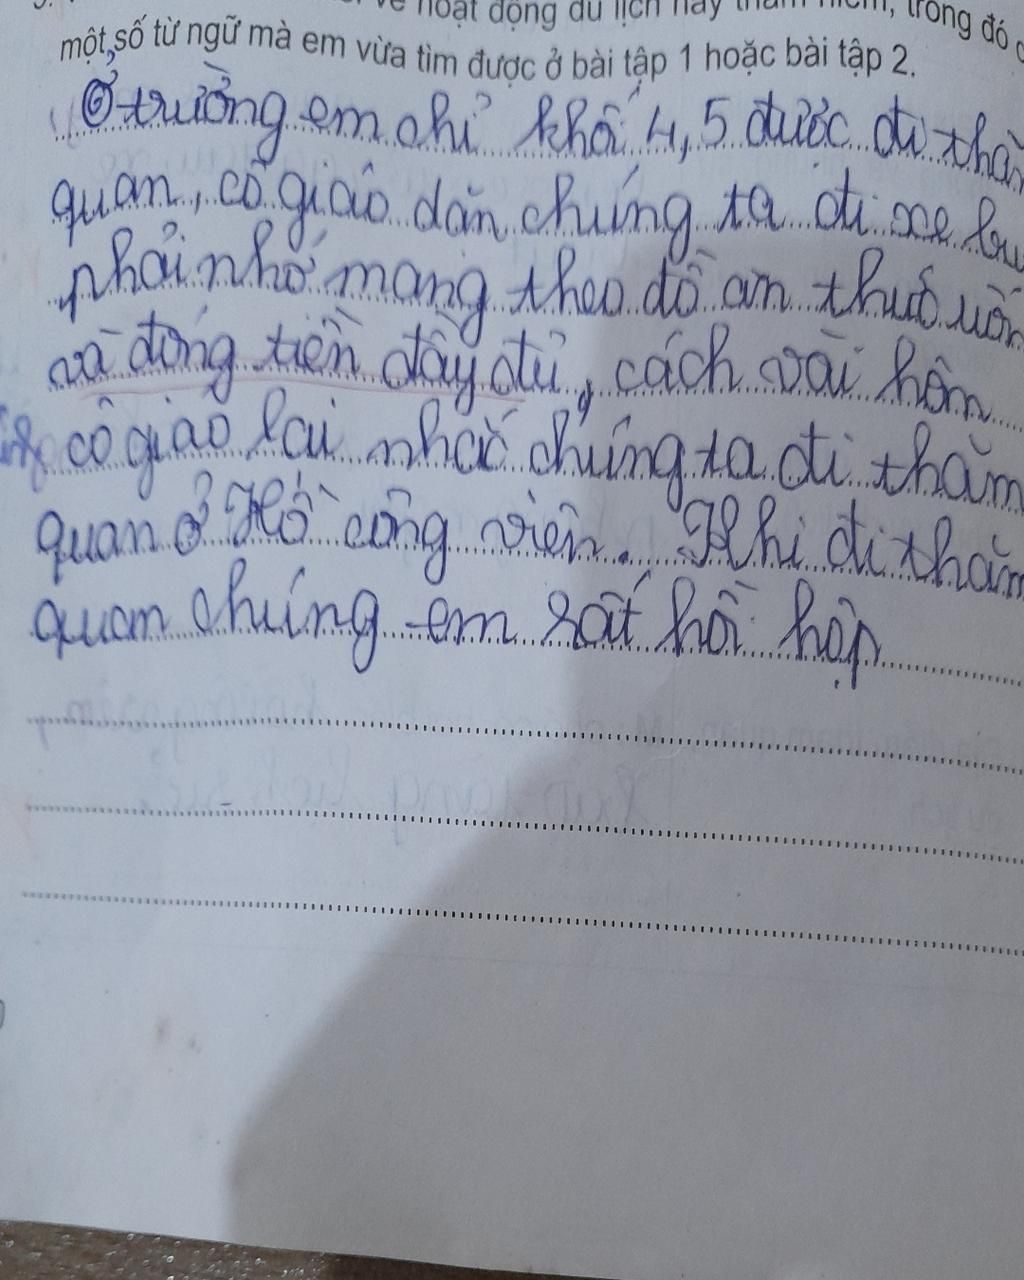 về hoạt động du lịch hay thám hiểm, trong đó
một số từ ngữ mà em vừa tìm được ở bài tập 1 hoặc bài tập 2.
Ở trường em chỉ khối 4, 5 được đi thăm
quan, cô giáo dặn chúng ta đi xe
phải nhớ mang theo đồ ăn thức uống
và đóng tiền đầy đủ, cách vài hôm
cô giáo lại nhắc chúng ta đi thăm
quan ở Hồ công viên. Khi đi thăm
quan chúng em rất hồi hộp